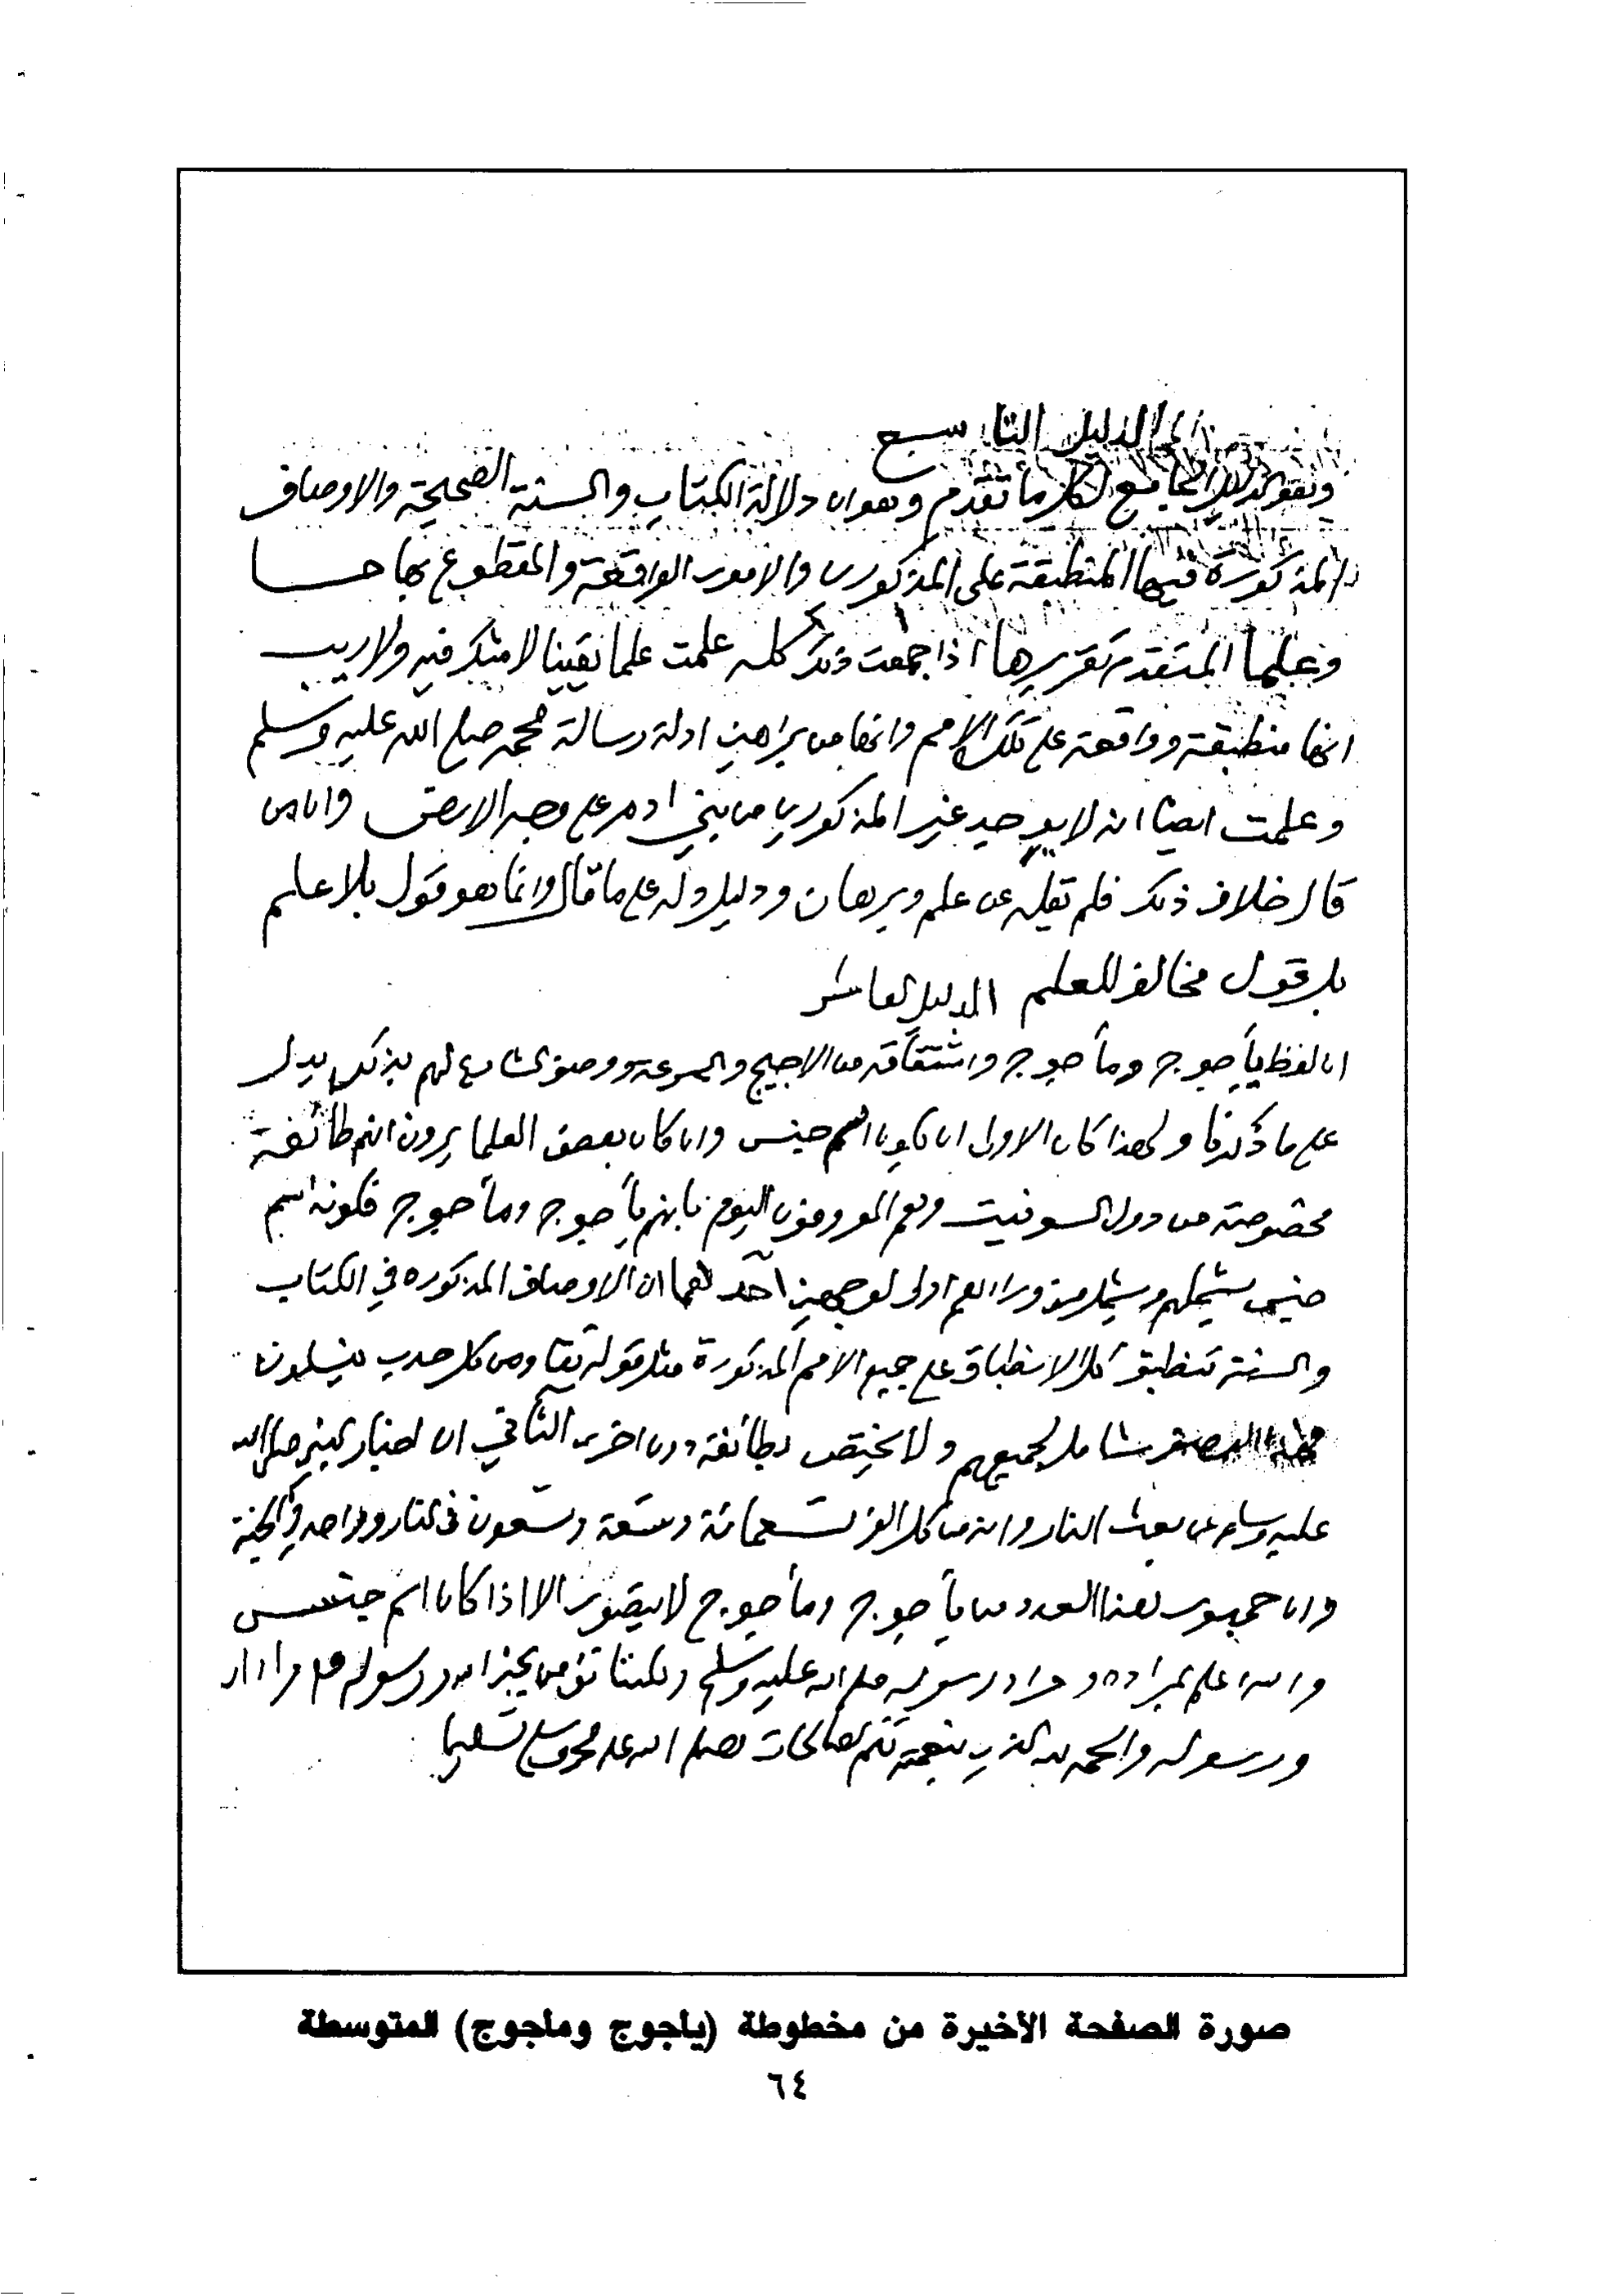 الدليل التاسع
وهو الدليل الجامع لكل ما تقدم وهو ان دلالة الكتاب والسنة الصحيحة والاوصاف
المذكورة فيها المنطبقة على المذكورين والامور الواقعة والمقطوع بها حسا
وعلما المتقدم تقريرها اذا جمعت ذلك كله علمت علما يقينا لا شك فيه ولا ريب
انها منطبقة وواقعة على تلك الامم وانها من براهين ادلة رسالة محمد صلى الله عليه وسلم
وعلمت ايضا انه لا يوجد غير المذكورين من بني ادم على وجه الارض وان من
قال خلاف ذلك فلم يقله عن علم وبرهان ودليل دله على ما قال وانما هو قول بلا علم
بل قول مخالف للعلم الدليل العاشر
ان لفظ يأجوج ومأجوج واشتقاقه من الاجيج والسرعة ووصف الشارع لهم بذلك يدل
على ما ذكرنا ولهذا كان الاولى ان يكون اسم جنس وان كان بعض العلما يرون انهم طائفة
مخصوصة من دول السوفيت وهم المعروفون اليوم بأنهم يأجوج ومأجوج فكونه اسم
جنس يشملهم ويشمل من وراءهم اولى لوجهين احدهما ان الاوصاف المذكوره في الكتاب
والسنة تنطبق كل الانطباق على جميع الامم المذكورة مثل قوله تعا وهم من كل حدب ينسلون
فهذا الوصف شامل لجميعهم ولا يختص بطائفة دون اخرى الثاني ان اخبار النبي صلى الله
عليه وسلم عن بعث النار وانه من كل الف تسعمائة وتسعة وتسعون في النار وواحد في الجنة
وان جمهور هذا العدد من يأجوج ومأجوج لا يتصور الا اذا كان اسم جنس
والله اعلم بمراده ومراد رسوله صلى الله عليه وسلم ولكننا نؤمن بخبر الله ورسوله على مراد الله
ورسوله والحمد لله الذي بنعمته تتم الصالحات وصلى الله على محمد وسلم تسليما
صورة الصفحة الأخيرة من مخطوطة (يأجوج ومأجوج) المتوسطة
٦٤